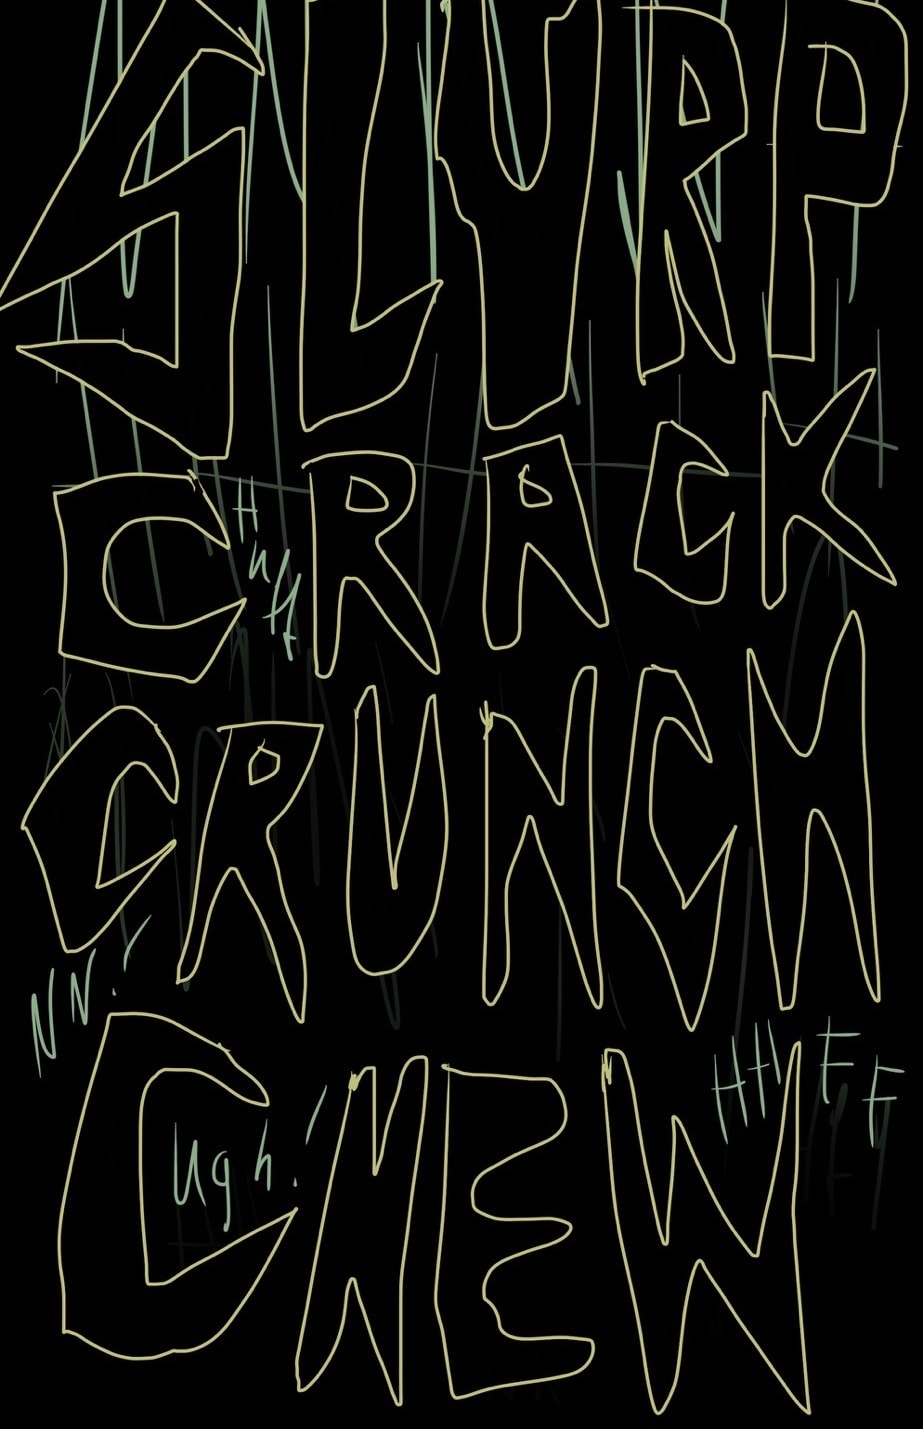 SLURP
CRACK
Huff
CRUNCH
NN!
CHEW
Ugh!
HHFF